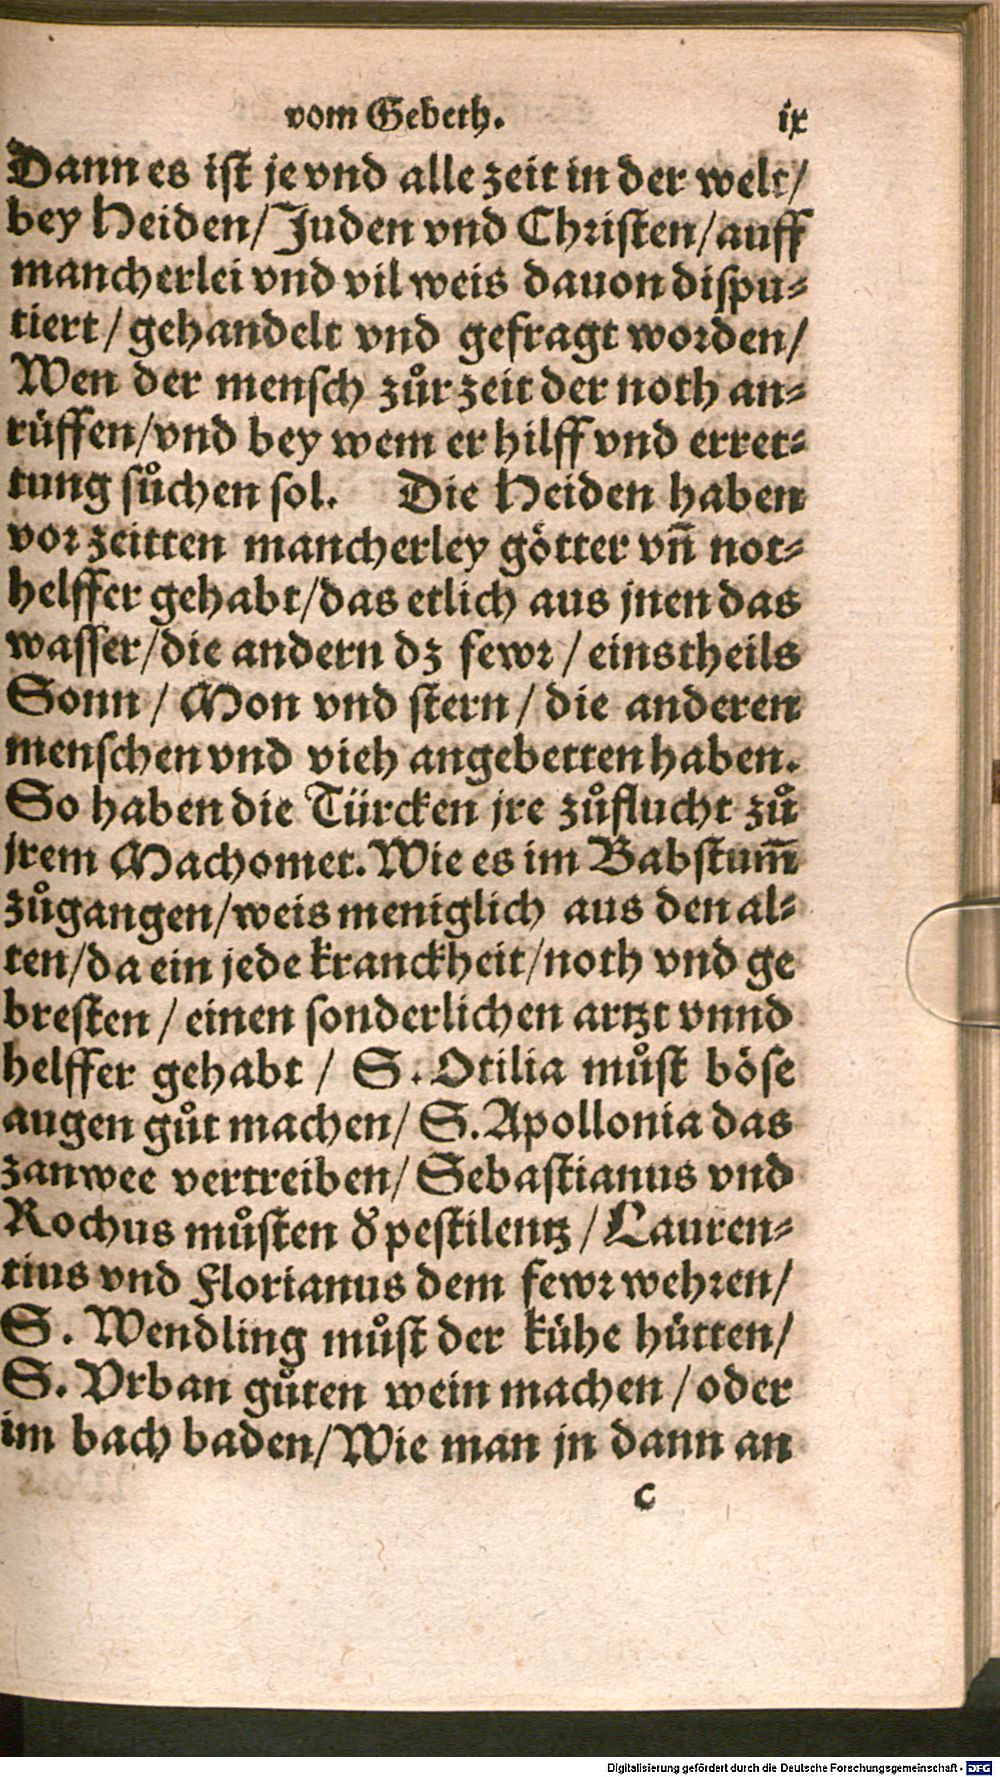 vom Gebeth. ix
Dann es ist je vnd alle zeit in der welt/
bey Heiden/ Juden vnd Christen/ auff
mancherlei vnd vil weis dauon dispu⸗
tiert/ gehandelt vnd gefragt worden/
Wen der mensch zůr zeit der noth an⸗
rüffen/ vnd bey wem er hilff vnd erret⸗
tung sůchen sol. Die Heiden haben
vor zeitten mancherley götter vñ not⸗
helffer gehabt/ das etlich aus jnen das
wasser/ die andern dz fewr/ einstheils
Sonn/ Mon vnd stern/ die anderen
menschen vnd vieh angebetten haben.
So haben die Türcken jre zůflucht zů
jrem Machomet. Wie es im Babstum̃
zůgangen/ weis meniglich aus den al⸗
ten/ da ein jede kranckheit/ noth vnd ge
bresten/ einen sonderlichen artzt vnnd
helffer gehabt/ S. Otilia můst böse
augen gůt machen/ S. Apollonia das
zanwee vertreiben/ Sebastianus vnd
Rochus můsten d̕ pestilentz/ Lauren⸗
tius vnd Florianus dem fewr wehren/
S. Wendling můst der kühe hütten/
S. Vrban gůten wein machen/ oder
im bach baden/ Wie man jn dann an
c
Digitalisierung gefördert durch die Deutsche Forschungsgemeinschaft - DFG